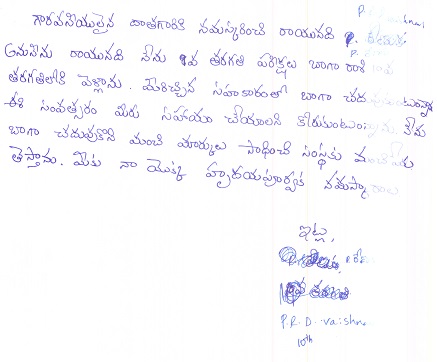 గౌరవనీయులైన దాతగారికి నమస్కరించి రాయునది P.
అనునను రాయునది నేను 9వ తరగతి పరీక్షలు బాగా రాశి 10వ
తరగతిలోకి వెళ్లాను. మీరిచ్చిన సహకారంతో బాగా చదువుకుంటున్నాను
ఈ సంవత్సరం మీరు సహాయం చేయాలని కోరుకుంటున్నాను. నేను
బాగా చదువుకొని మంచి మార్కులు సాధించి సంస్థకు మంచిపేరు
తెస్తాను. మీకు నా యొక్క హృదయపూర్వక నమస్కారాలు
ఇట్లు,
తరగతి
P.R.D. vaishn
10th